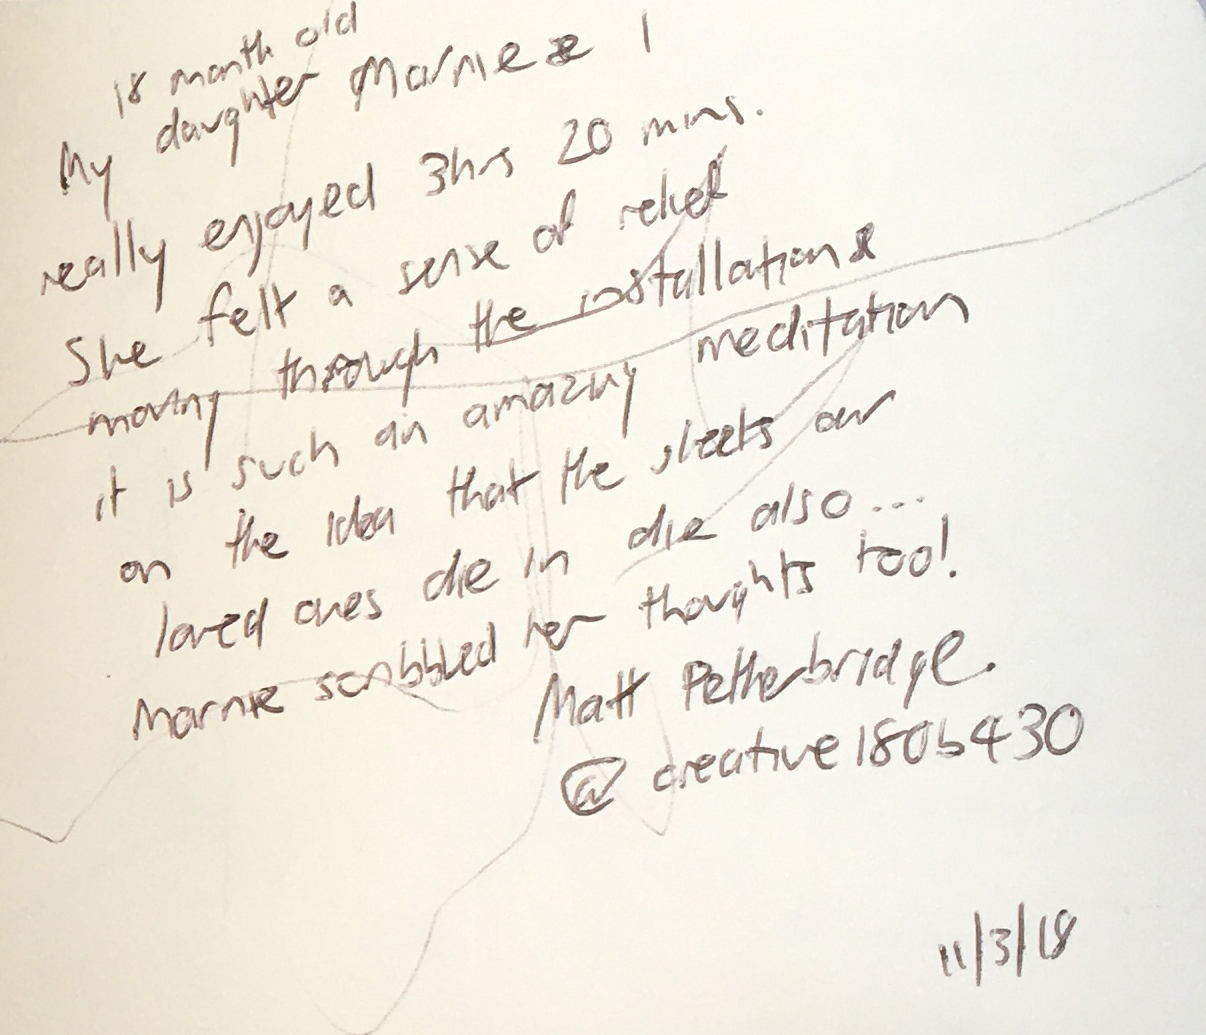 18 month old
My daughter Marnie & I
really enjoyed 3hrs 20 mins.
She felt a sense of relief
moving through the installation &
it is such an amazing meditation
on the idea that the sheets our
loved ones die in die also...
Marnie scribbled her thoughts too!
Matt Petherbridge.
@creative180b430
11/3/18